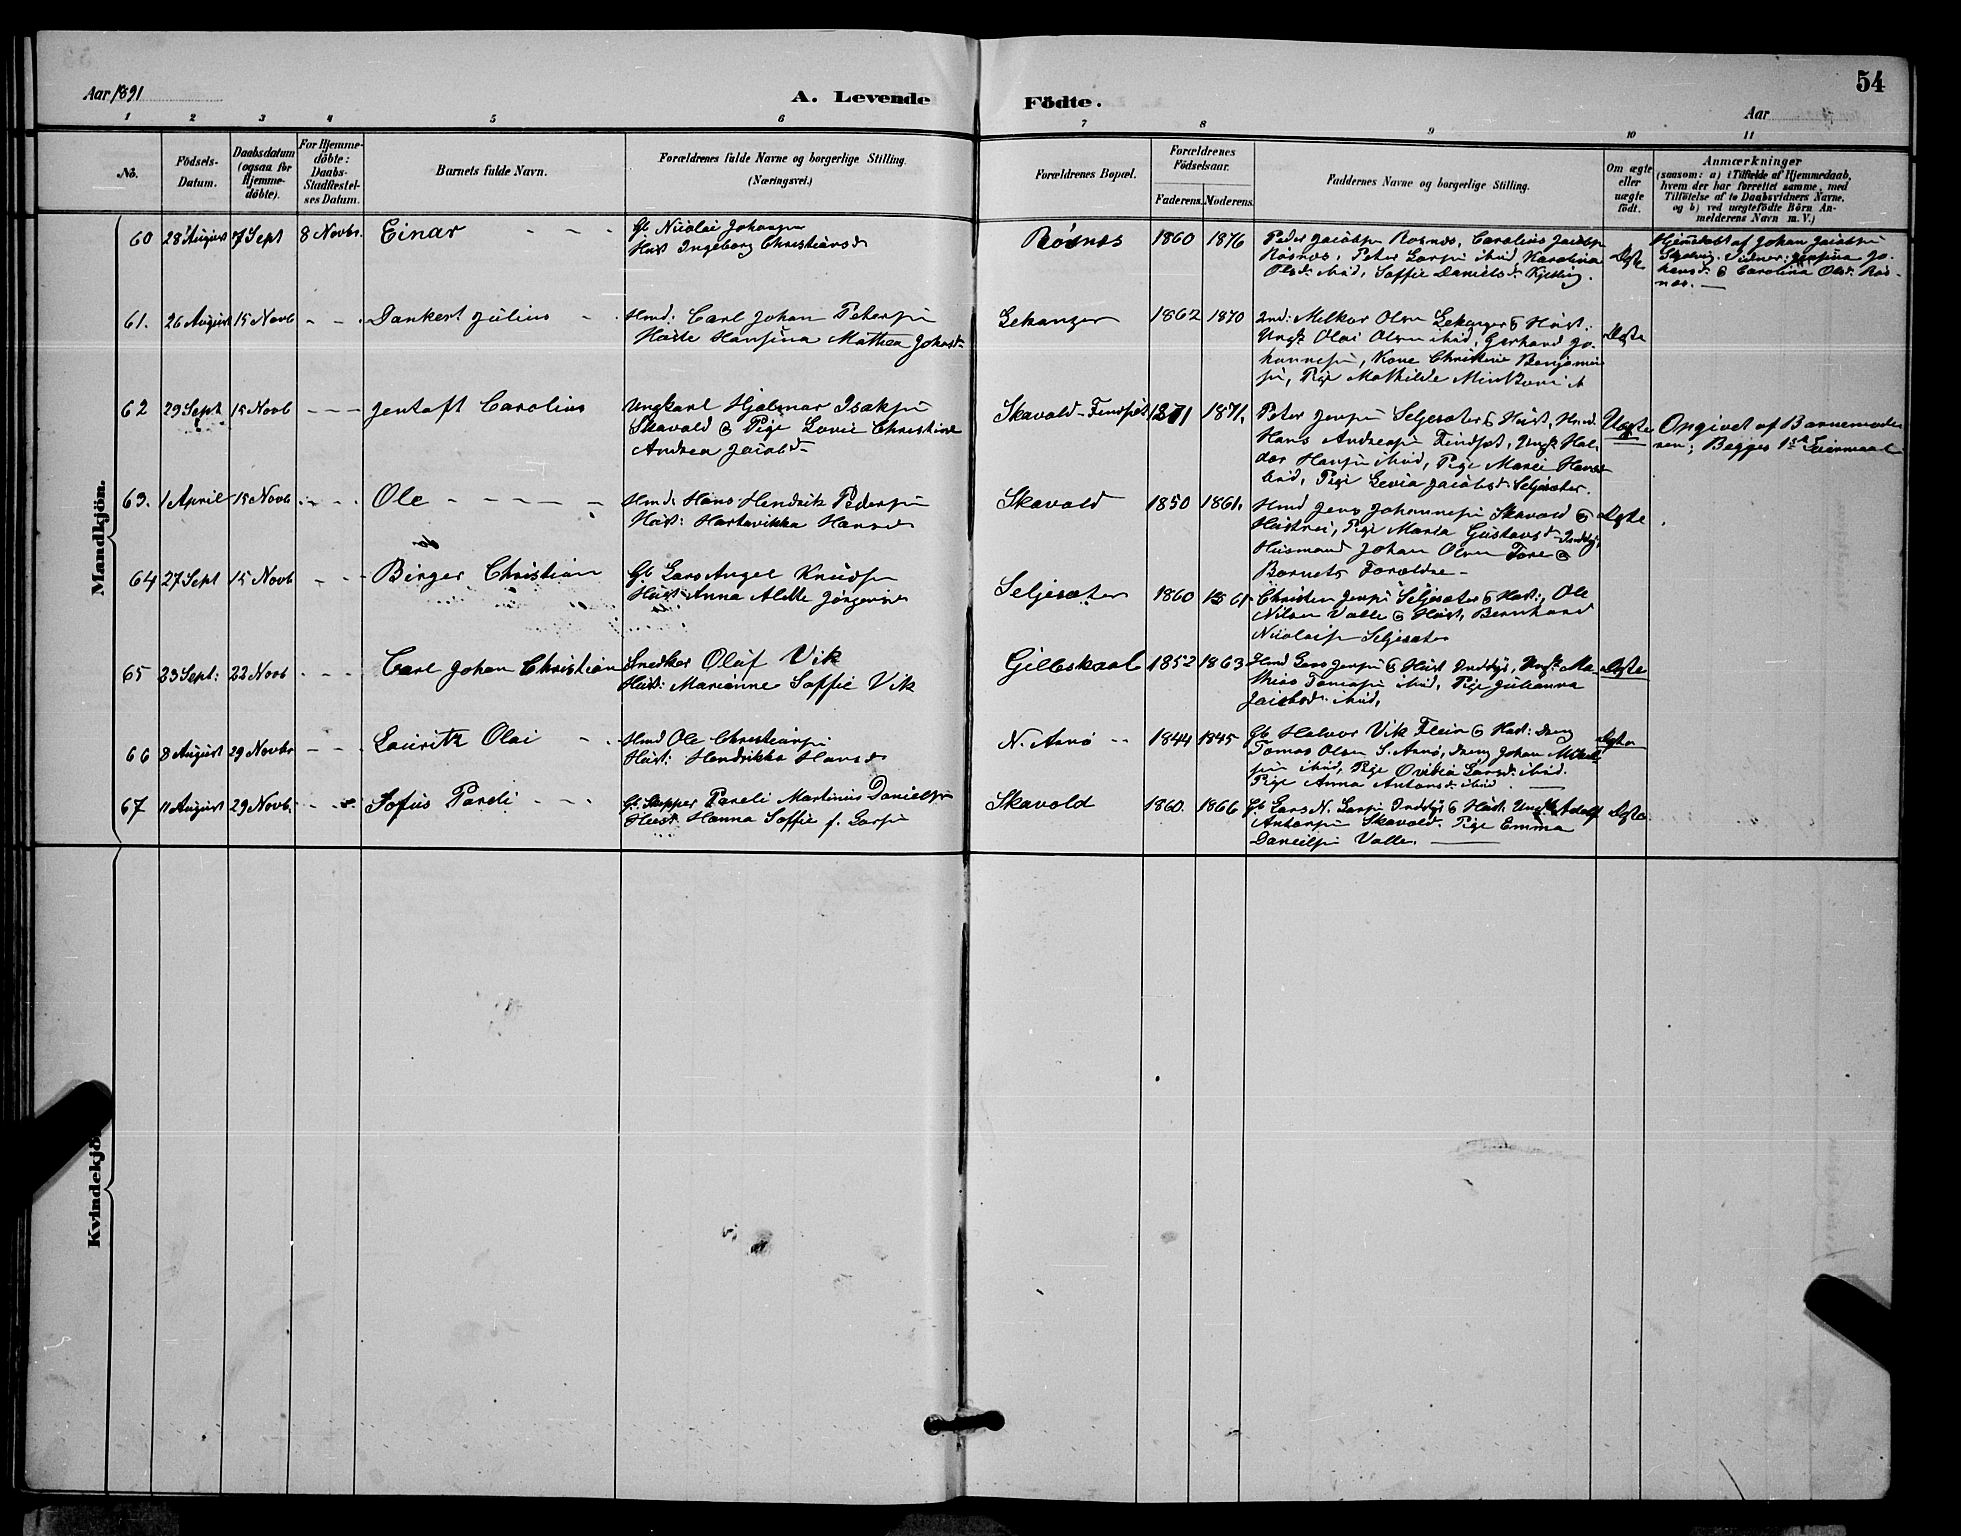 54
Aar 1891
A. Levende Födte.
Aar
1 2 3 4 5 6 7 8 9 10 11
No.
Födsels-Datum.
Daabsdatum (ogsaa for Hjemme-döbte).
For Hjemme-döbte: Daabs-Stadfæstel-ses Datum.
Barnets fulde Navn.
Forældrenes fulde Navne og borgerlige Stilling.
(Næringsvei.)
Forældrenes Bopæl.
Forældrenes Födselsaar.
Faderens. Moderens.
Faddernes Navne og borgerlige Stilling.
Om ægte eller uægte födt.
Anmærkninger
(saasom: a) i Tilfælde af Hjemmedaab,
hvem der har forrettet samme, med
Tilföielse af to Daabsvidners Navne,
og b) ved uægtefödte Börn An-
melderens Navn m. V.)
Mandkjön.
60 28 August 7 Sept 8 Novbr. Einar
Gb. Nicolai Johansen
Hust Ingeborg Christiansd
Rösnæs 1860 1876
Peder Jacobsen Rosnæs, Carolius Jacobsen
Rösnæs, Peter Larsen ibid, Karolina
Olsd. ibid, Soffie Danielsd. Kjelling.
Ægte
Hjemmedøbt af Johan Jacobsen
Vidner: Jensina Jo-
hansd. & Carolina Olsd. Røs-
næs.
61. 26 August 15 Novb Dankert Julius
Hmd: Carl Johan Petersen
Huste Hansina Mathea Johnsd
Lekanger 1862 1870
Ind: Melkor Olsen Lekanger & Hust:
Ungk Olai Olsen ibid, Gerhard Jo-
hannesen, Kone Christine Benjamin
sen, Pige Mathilde
Ægte
62 29 Sept 15 Novb Jentoft Carolius
Ungkarl Hjalmar Isaksen
Skavold & Pige Lovie Christine
Andrea Jacobsd
Skavold - Findset 1871 1871.
Peter Jensen Seljesæter & Hust, Hmd.
Hans Andreasen Findset, Ungk. Hal-
dor Hansen ibid, Pige Marei Hansd
ibid, Pige Jacobsd. Seljesæter.
Uægte
Opgivet af Barnemode-
ren; Begges 1ste Leiermaal
63. 1 April 15 Novb Ole
Hmd: Hans Hendrik Pedersen
Hust: Hartevikka Hansd
Skavold 1850 1861.
Hmd Jens Johannesen Skavold &
Hustrui, Pige Maria Gustavsd Inndyr,
Husmand Johan Olsen Fore &
Barnets Forældre
Ægte
64 27 Sept 15 Novb Birger Christian
Gb Lars Angel Knudsen
Hust Anna Alette Jörgensd
Seljesæter 1860 1861
Christen Jensen Seljesæter & Hust:, Ole
Nilsen Valle & Hust, Bernhard
Nicolaisen Seljesæter
65 23 Sept: 22 Novb Carl Johan Christian
Snedker Oluf Vik
Hust: Marianne Soffie Vik
Gilleskaal 1852 1863
Hmd Lars Jensen & Hust Inndyr, Ungk. Ma-
thias Tomasen ibid, Pige Julianna
Jacobsd. ibid,
Ægte
66 8 August 29 Novbr Lauritz Olai
Hmd Ole Christiansen
Hust: Hendrikka Hansd
N. Arnø 1844 1845
Gb. Halvor Vik Flein & Hust: dreng
Tomas Olsen S. Arnø, dreng Johan Mikal
sen ibid, Pige Ovidia Larsd. ibid.
Pige Anna Antonsd. ibid
Ægte
67 11 August 29 Novb. Sofus Pareli
Gb. Skipper Pareli Martinus Danielsen
Hust Hanna Soffie f. Larsen
Skavold 1860. 1866
Gb. Lars N. Larsen Inndyr & Hust. Ungk. Adolf
Antonsen Skavold. Pige Emma
Danielsen Valle.
Ægte
Kvindekjön.